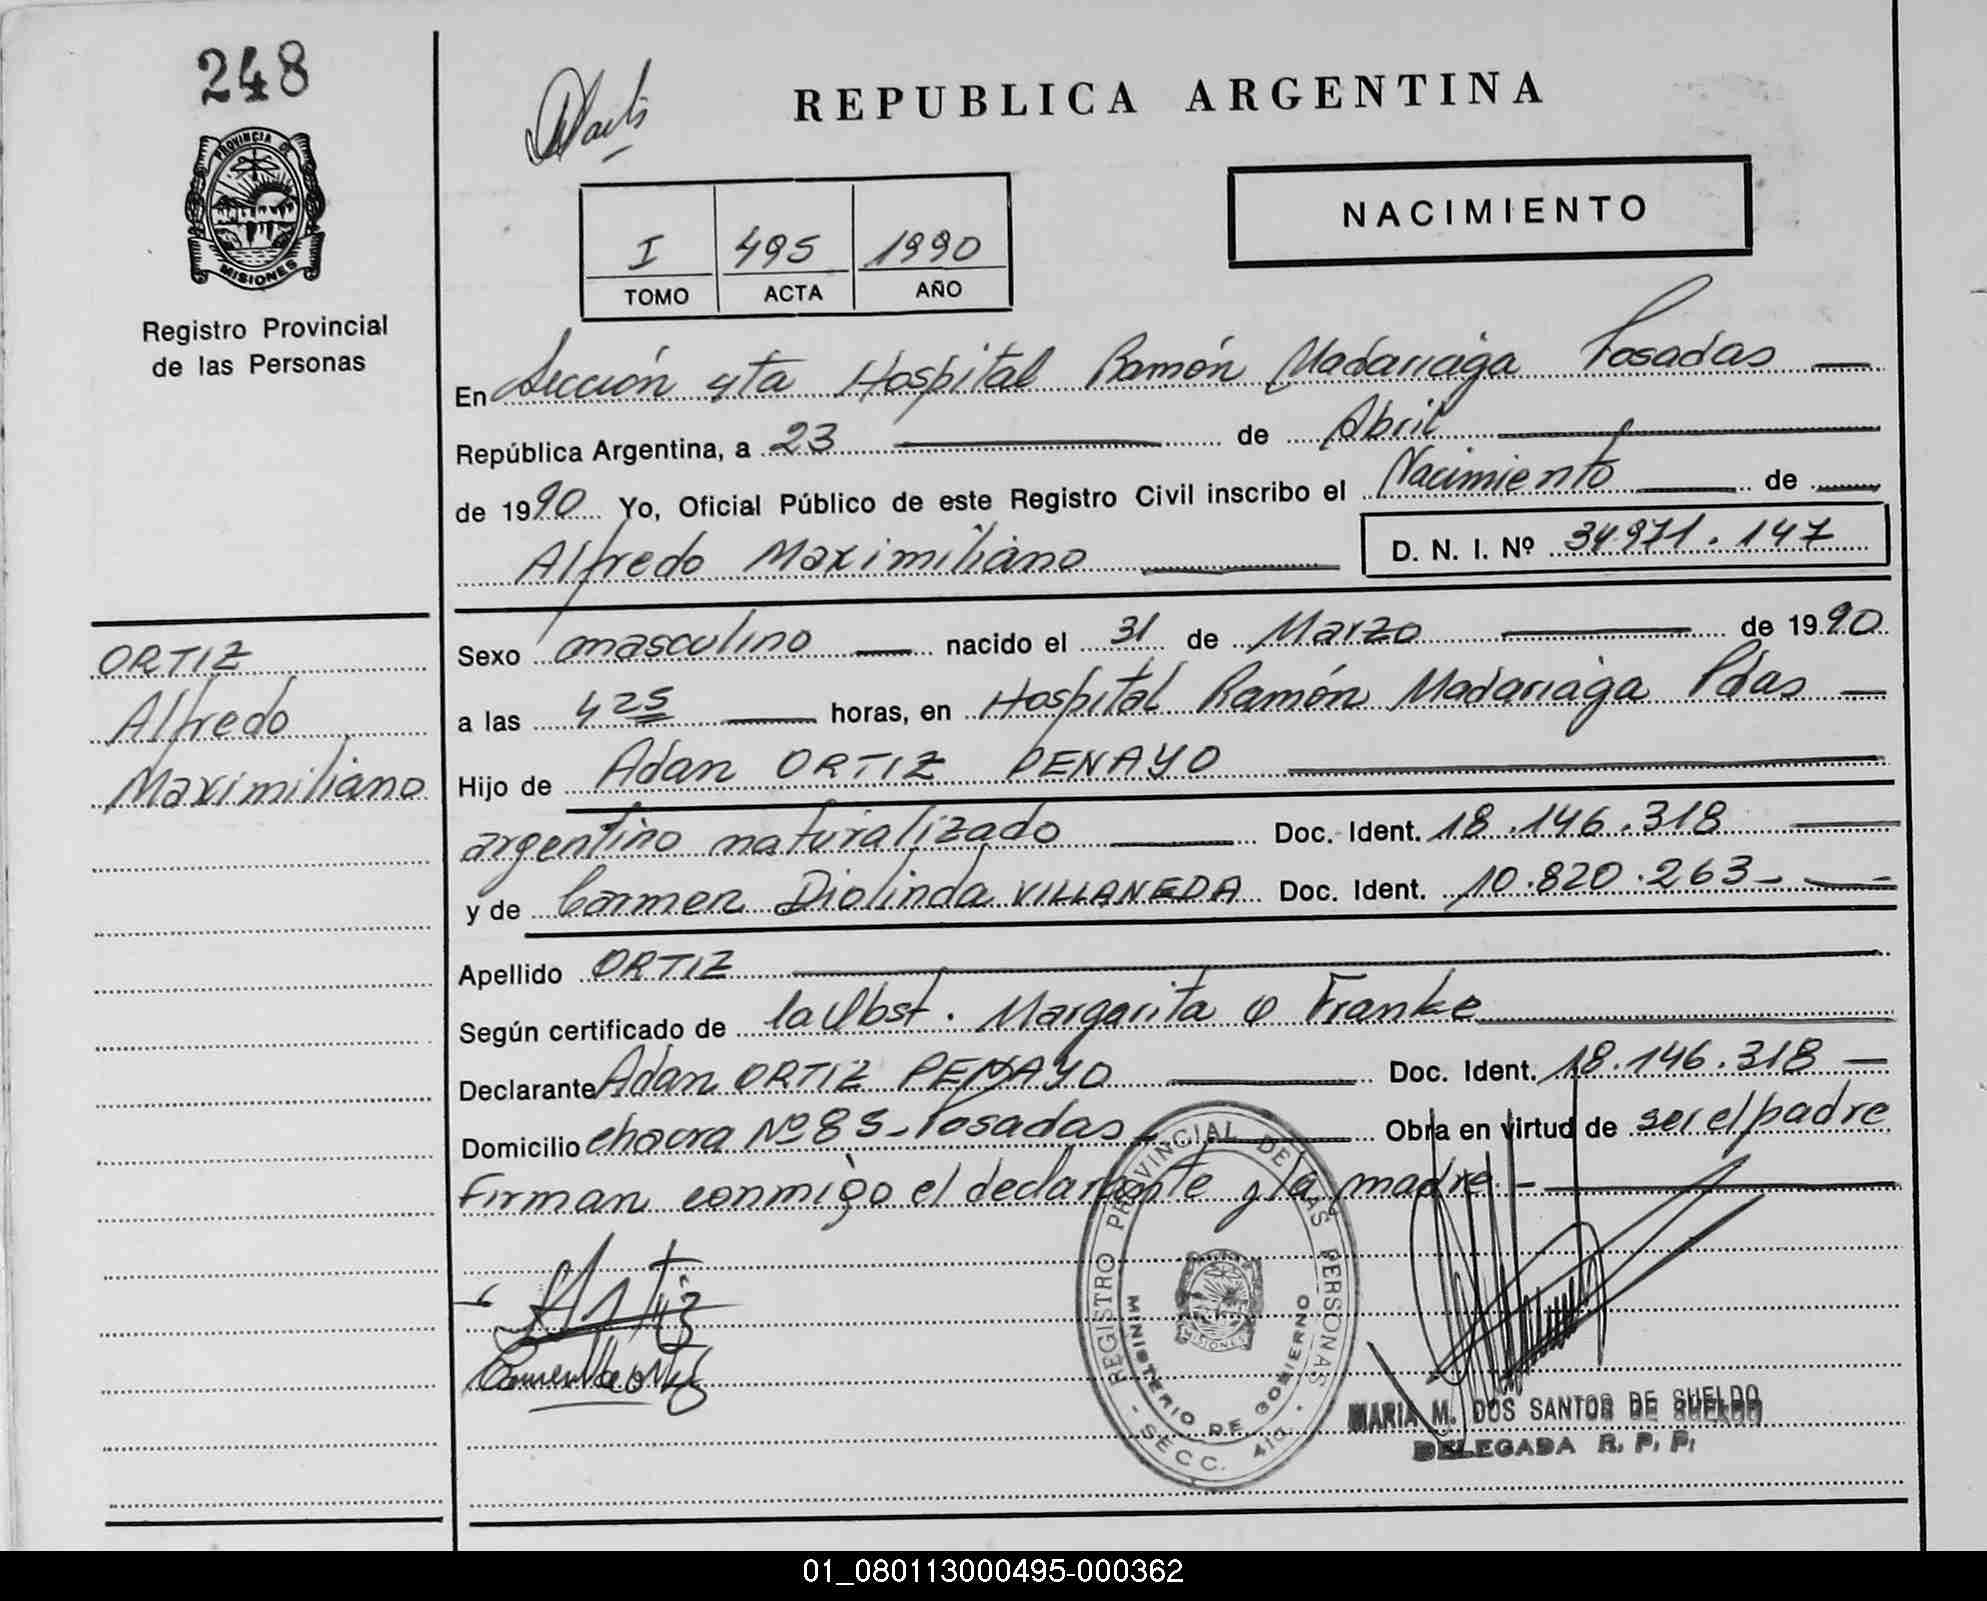 248
PROVINCIA DE
MISIONES
Registro Provincial
de las Personas
REPUBLICA ARGENTINA
NACIMIENTO
I 495 1990
TOMO ACTA AÑO
En Sección 4ta Hospital Ramón Madariaga Posadas
República Argentina, a 23 de Abril
de 1990 Yo, Oficial Público de este Registro Civil inscribo el Nacimiento de
Alfredo Maximiliano D. N. I. Nº 34971.147
ORTIZ
Alfredo
Maximiliano
Sexo masculino nacido el 31 de Marzo de 1990
a las 4 25 horas, en Hospital Ramón Madariaga Pdas
Hijo de Adan ORTIZ PENAYO
argentino naturalizado Doc. Ident. 18.146.318
y de Carmen Diolinda VILLANEDA Doc. Ident. 10.820.263-
Apellido ORTIZ
Según certificado de la Obst. Margarita O Franke
Declarante Adan ORTIZ PENAYO Doc. Ident. 18.146.318
Domicilio chacra Nº 83- Posadas- Obra en virtud de ser el padre
Firman conmigo el declarante y la madre-
REGISTRO PROVINCIAL DE LAS PERSONAS
MINISTERIO DE GOBIERNO
MISIONES
- SECC. 4ta. -
MARIA M. DOS SANTOS DE SUELDO
DELEGADA R. P. P.
01_080113000495-000362